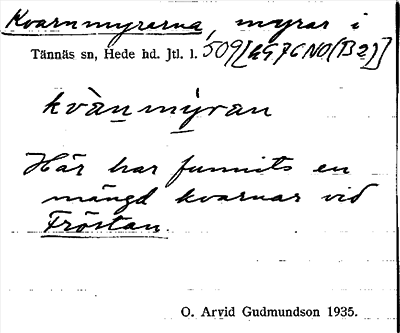 Kvarnmyrarna, myrar i
Tännäs sn, Hede hd. Jtl. l. 509[kG7CNO(B2)]
kvànmỳran
Här har funnits en
mängd kvarnar vid
Fröstan.
O. Arvid Gudmundson 1935.